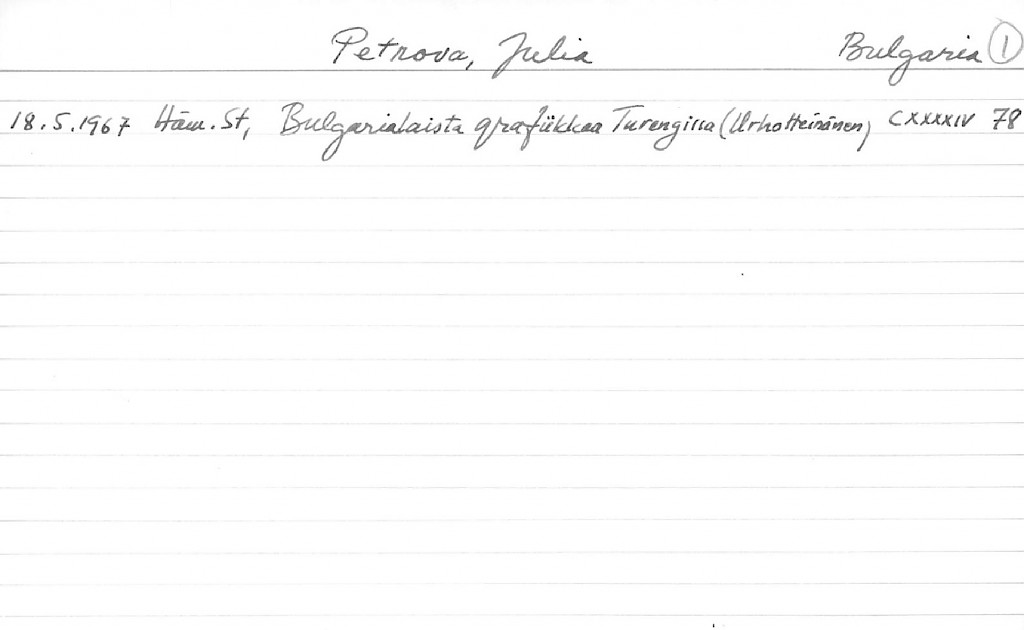 Petrova, Julia Bulgaria 1
18.5.1967 Häm. St, Bulgarialaista grafiikkaa Turengissa (Urho Heinänen) CXXXXIV 78